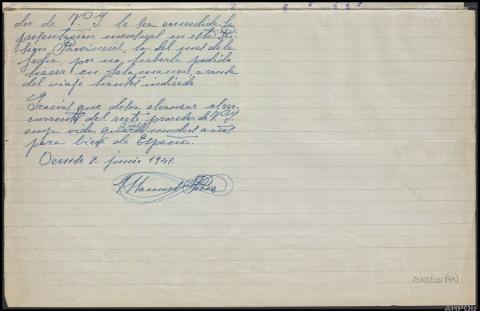 dor de V. Y. le sea concedida la
presentación mensual en esta Pri
sion Provincial, la del mes de la
fecha, por no haberla podido
hacer en Salamanca, a causa
del viaje hantes indicado
Gracias que desea alcanzar el re
currente del recto proceder de V. Y
cuya vida guarde muchos años
para bien de España.
Orense 2. junio 1941.
Manuel
AHPOu